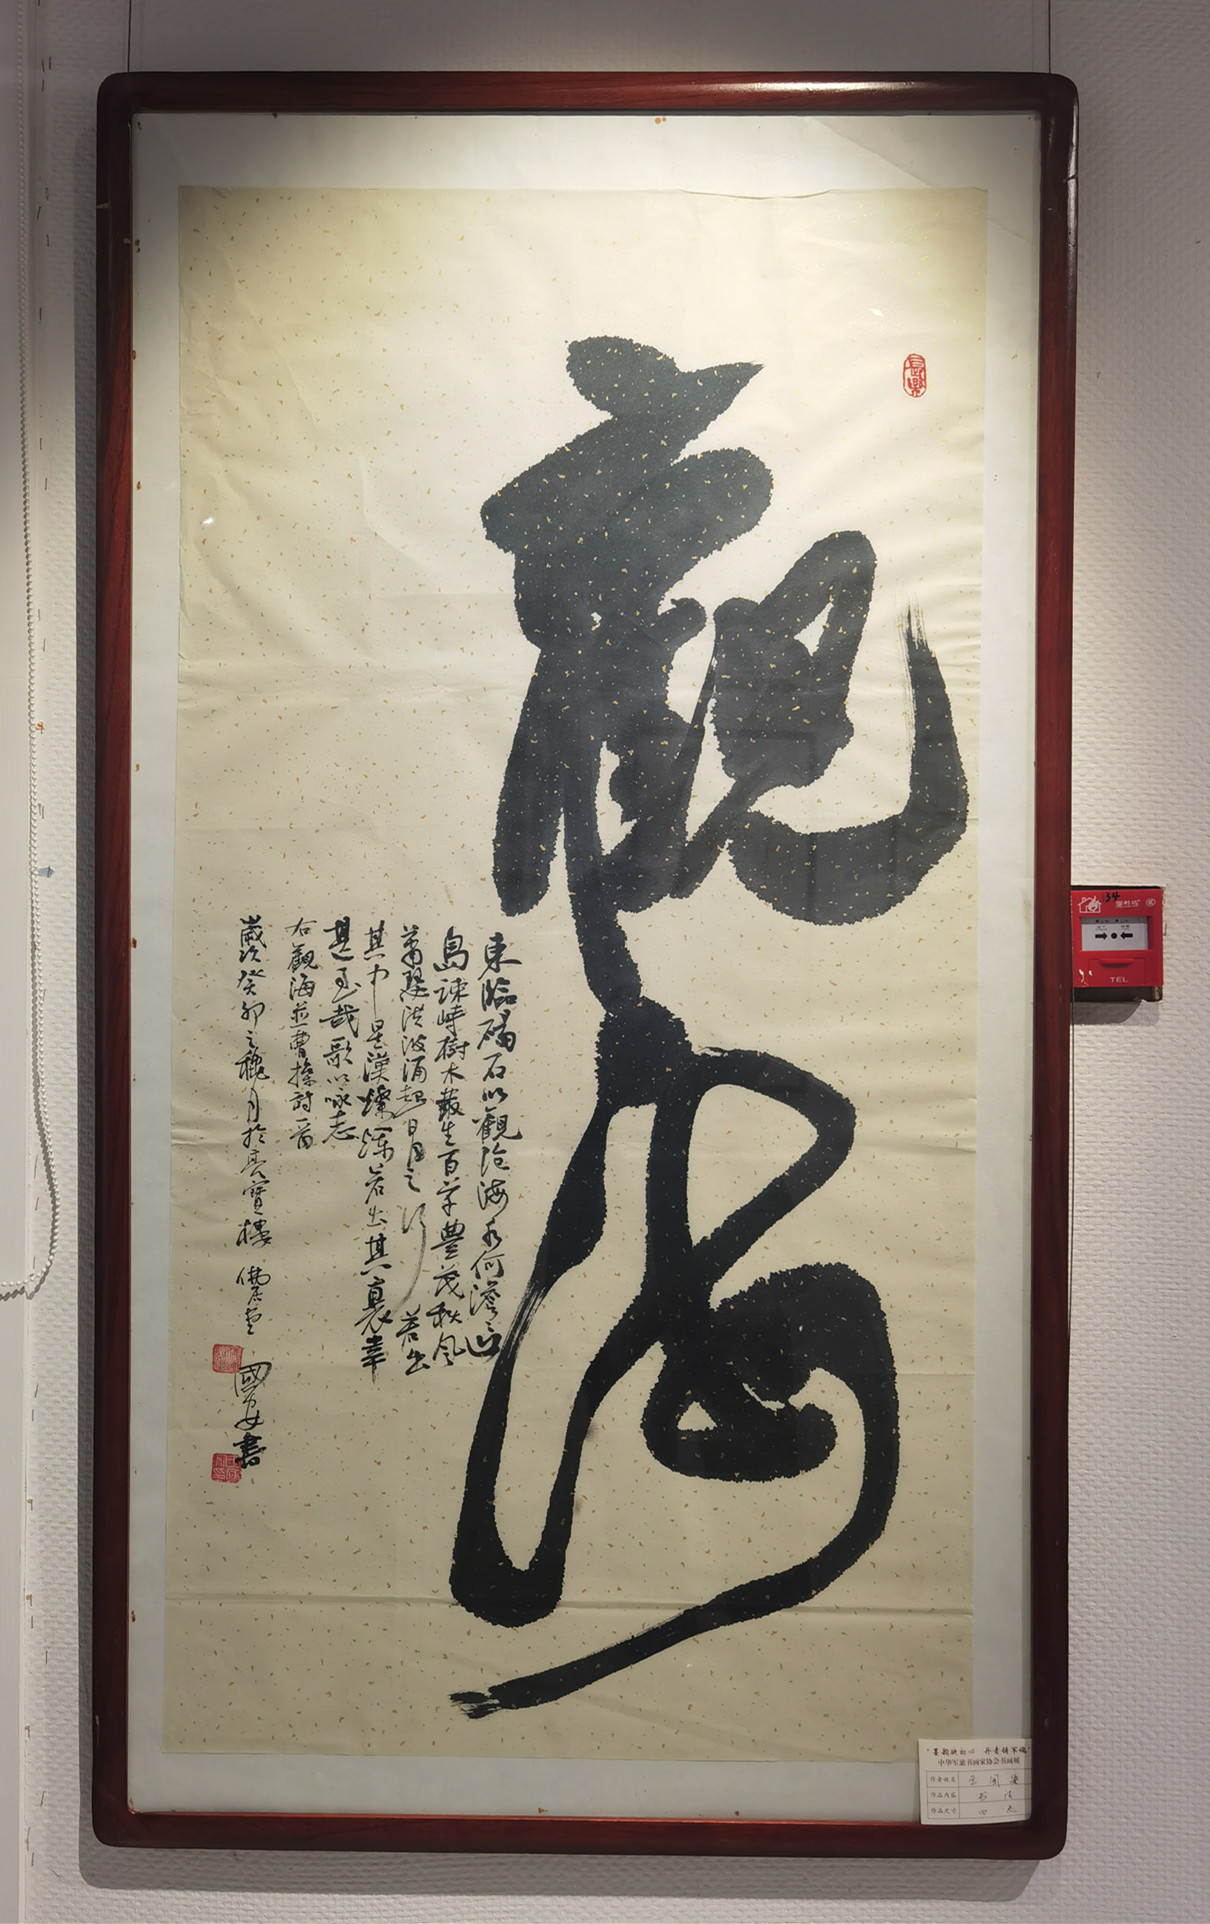 觀海
東臨碣石以觀滄海水何澹々山
島竦峙樹木叢生百草豐茂秋風
蕭瑟洪波涌起日月之行若出
其中星漢燦爛若出其裏幸
甚至哉歌以咏志
右觀海並曹操詩一首
歲次癸卯之穐月於亮寶樓
國安書
34
TEL
中华军旅书画家协会书画展
作者姓名 王国安
作品内容 书法
作品尺寸 四尺